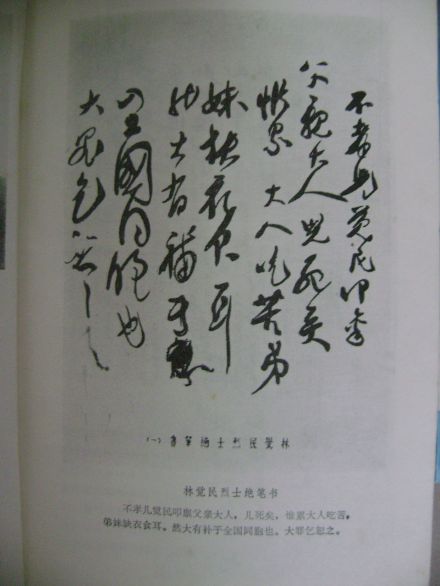 不孝兒覺民叩稟
父親大人兒死矣
惟累 大人吃苦弟
妹缺衣食耳
然大有補于
全國同胞也
大罪乞恕之
林覺民烈士絕筆書(一)
林觉民烈士绝笔书
不孝儿觉民叩禀父亲大人，儿死矣，惟累大人吃苦，
弟妹缺衣食耳。然大有补于全国同胞也，大罪乞恕之。